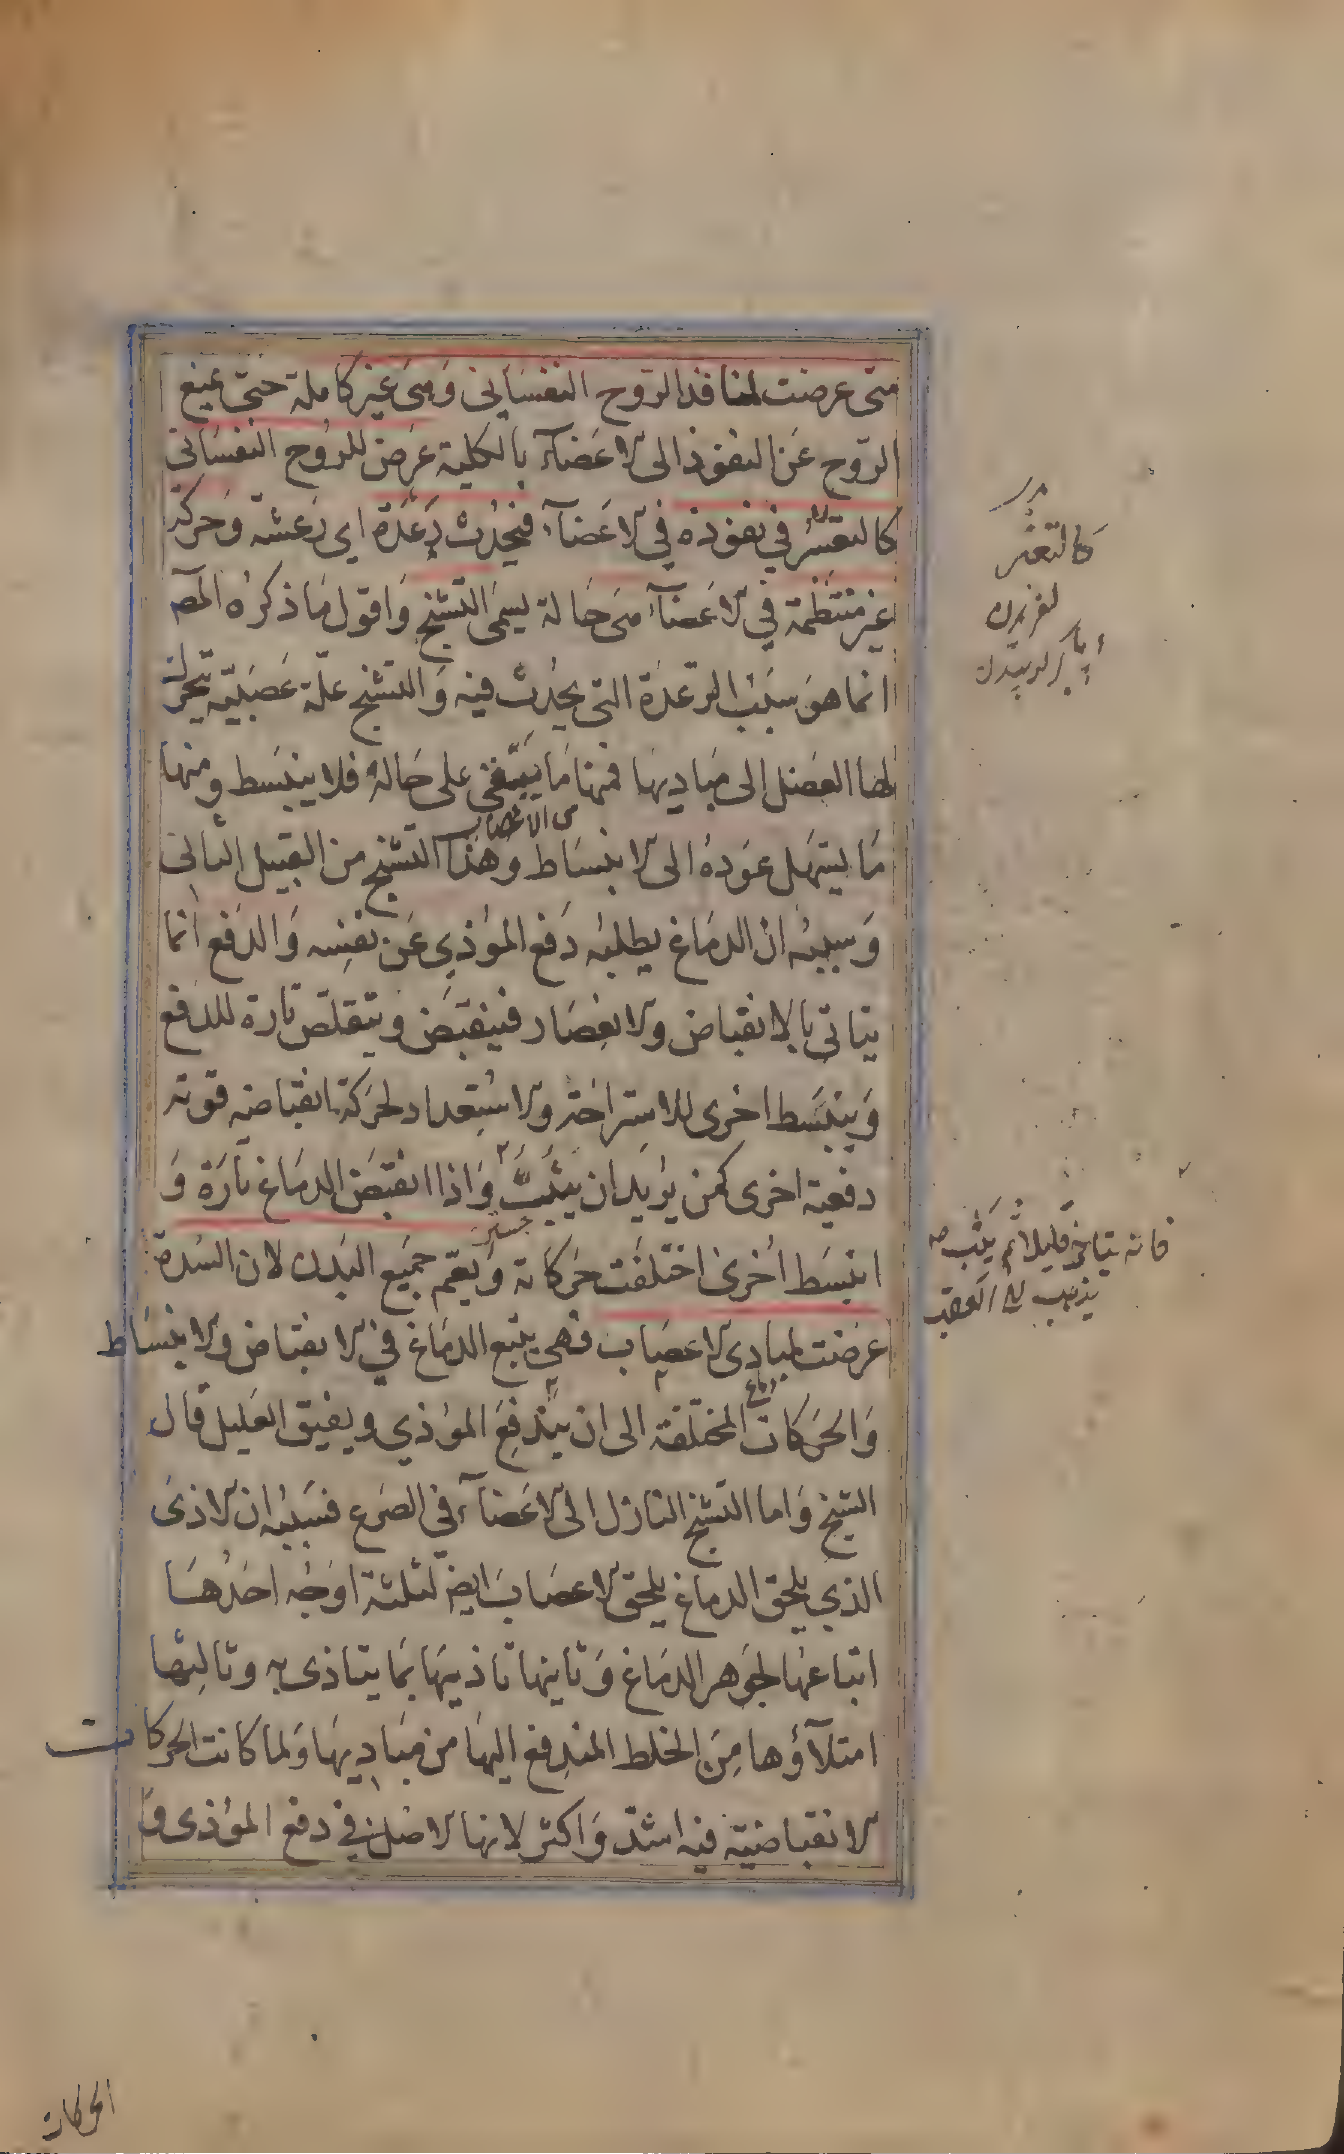 متى عرضت لمنافذ الروح النفساني وهى غير كاملة حتى يمنع
الروح عن النفوذ الى الاعضآء بالكلية عرض للروح النفسانى
كالتعسر في نفوذه في الاعضآء فيحدث رعدة اى رعشة وحركة
غير منتظمة في الاعضآء هى حالة يسمى التشنج واقول ما ذكره المص
انما هو سبب الرعدة التى يحدث فيه والتشنج علة عصبية يتحرك
لها العضل الى مباديها فمنها ما يبقى على حاله فلا ينبسط ومنها
من الاعصاب
ما يسهل عوده الى الانبساط وهذا التشنج من القبيل الثانى
وسببه ان الدماغ يطلبه دفع الموذي عن نفسه والدفع انما
يتاتى بالانقباض والانعصار فينقبض ويتقلص تارة للدفع
وينبسط اخرى للاستراحة والاستعداد لحركة انقباضيه قوته
دفعية اخرى كمن يريد ان يثب واذا انقبض الدماغ تارة و
جستن
انبسط اخرى اختلفت حركاته ويعم جميع البدن لان السدة
عرضت لمبادى الاعصاب فهى يتبع الدماغ في الانقباض والانبساط
دماغ
والحركات المختلفة الى ان يندفع الموذي ويفيق العليل قال
الشيخ واما التشنج النازل الى الاعضآء في الصرع فسببه ان الاذى
الذي يلحق الدماغ يلحق الاعصاب ايض لثلثة اوجه احدها
اتباعها لجوهر الدماغ وثانيها تاذيها بما يتاذى به وثالثها
امتلآؤها من الخلط المندفع اليها من مباديها ولما كانت الحركات
الانقباضية فيه اشد واكثر لانها الاصل في دفع الموذى و
كالتعثر
لغزيدن
فانه يتاخر قليلا ثم يثب
يذهب الى العقب
الحركات